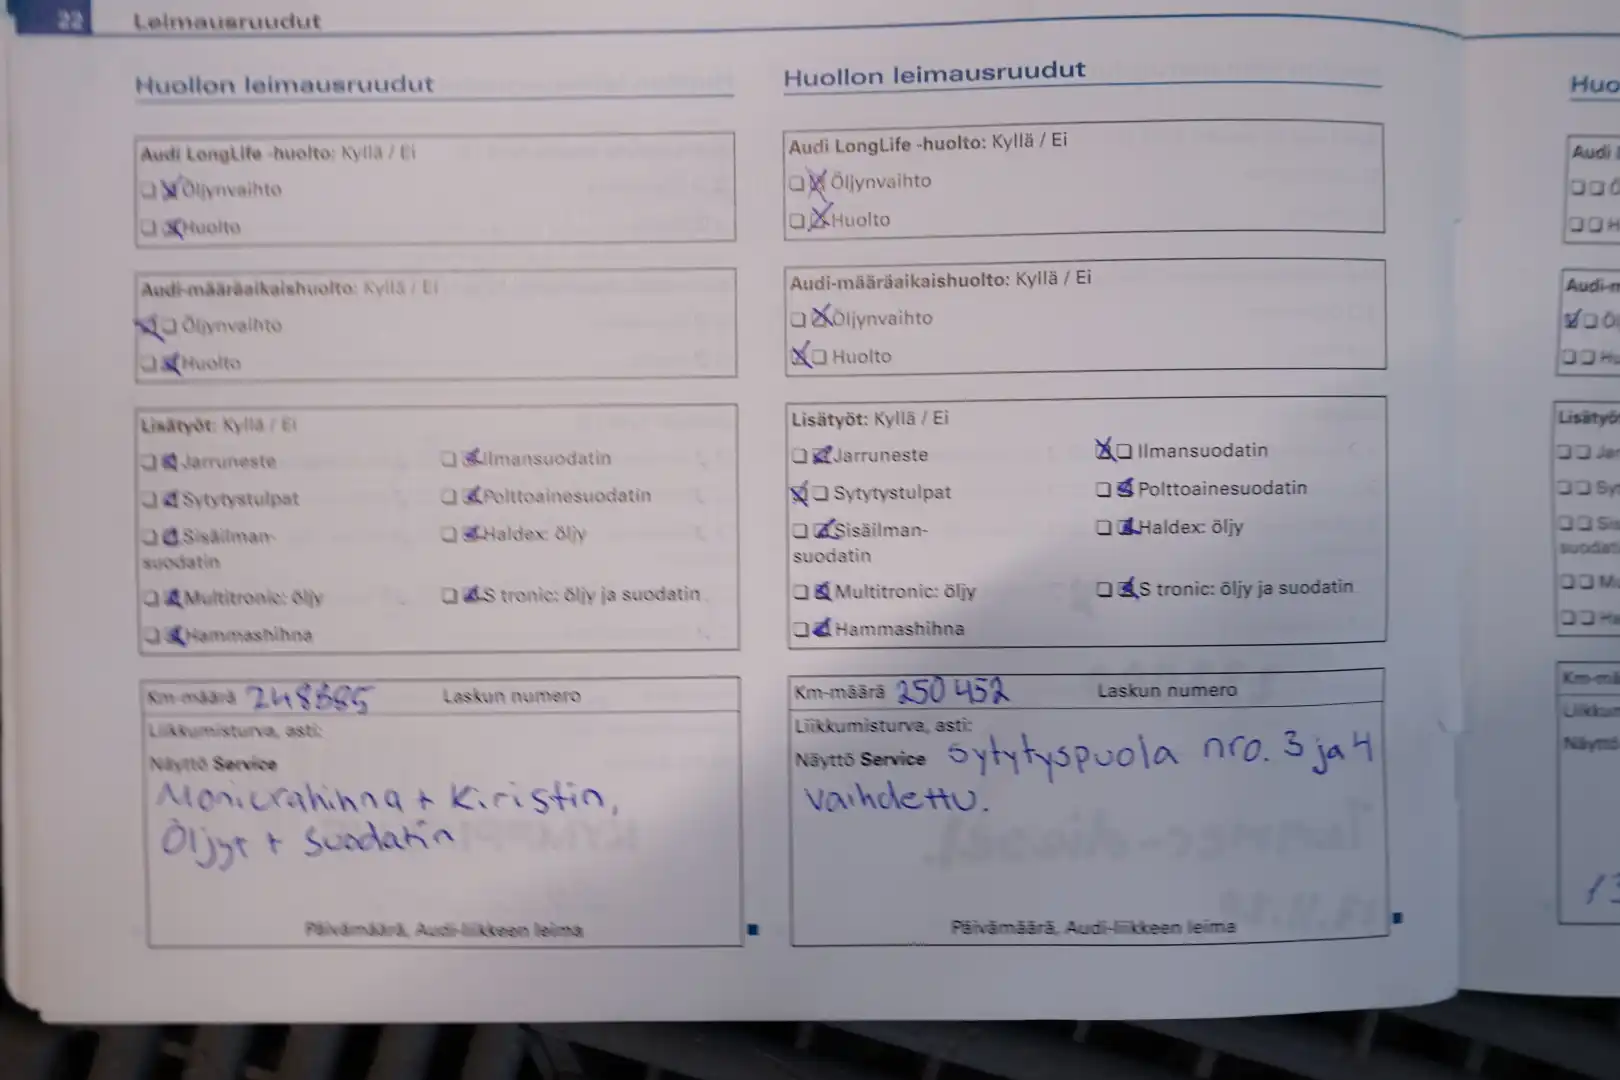 22 Leimausruudut
Huollon leimausruudut
Audi LongLife -huolto: Kyllä / Ei
Öljynvaihto
Huolto
Audi-määräaikaishuolto: Kyllä / Ei
Öljynvaihto
Huolto
Lisätyöt: Kyllä / Ei
Jarruneste
Ilmansuodatin
Sytytystulpat
Polttoainesuodatin
Sisäilman-
suodatin
Haldex: öljy
Multitronic: öljy
S tronic: öljy ja suodatin
Hammashihna
Km-määrä
Laskun numero
Liikkumisturva, asti:
Näyttö Service
Monicrahihna + Kiristin,
Öljyt + Suodatin
Päivämäärä, Audi-liikkeen leima
Huollon leimausruudut
Audi LongLife -huolto: Kyllä / Ei
Öljynvaihto
Huolto
Audi-määräaikaishuolto: Kyllä / Ei
Öljynvaihto
Huolto
Lisätyöt: Kyllä / Ei
Jarruneste
Ilmansuodatin
Sytytystulpat
Polttoainesuodatin
Sisäilman-
suodatin
Haldex: öljy
Multitronic: öljy
S tronic: öljy ja suodatin
Hammashihna
Km-määrä 250 452
Laskun numero
Liikkumisturva, asti:
Näyttö Service Sytytyspuola nro. 3 ja 4
vaihdettu.
Päivämäärä, Audi-liikkeen leima
Huo
Audi
Audi-m
Lisätyö
Km-mä
Näyttö